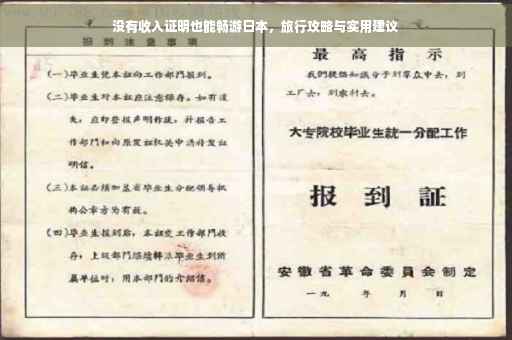 没有收入证明也能畅游日本，旅行攻略与实用建议
报到注意事项
(一)毕业生凭本证向工作部门报到。
(二)毕业生对本证应注意保存。如有遗
失，应即登报声明作废，并报告工
作部门和向原发证机关申请补发证
明信。
(三)本证必须加盖省毕业生分配领导机
构公章方为有效。
(四)毕业生报到后，本证交工作部门收
存；上级部门继续转派毕业生到所
属单位时，用本部门的介绍信。
最高指示
我们提倡知识分子到群众中去，到
工厂去，到农村去。
大专院校毕业生统一分配工作
报到证
安徽省革命委员会制定
一九 年 月 日